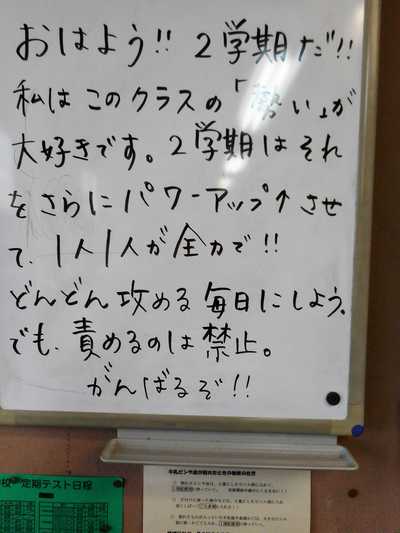 おはよう!! 2学期だ!!
私はこのクラスの「勢い」が
大好きです。2学期はそれ
をさらにパワーアップ↑させ
て、1人1人が全力で!!
どんどん攻める毎日にしよう。
でも、責めるのは禁止。
がんばるぞ!!
定期テスト日程